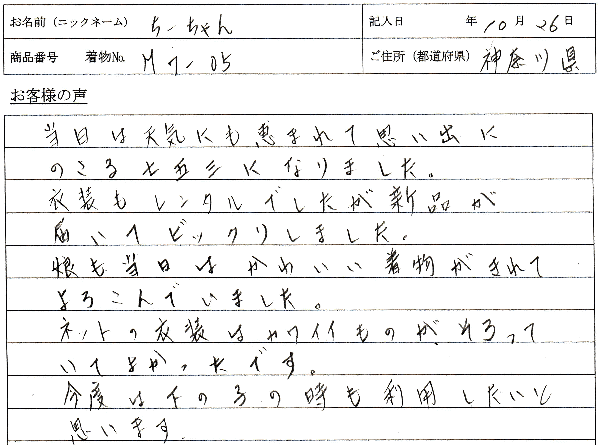 お名前（ニックネーム） ちーちゃん 記入日 年 10 月 26 日
商品番号 着物No. M7-05 ご住所（都道府県） 神奈川県
お客様の声
当日は天気にも恵まれて思い出に
のこる七五三になりました。
衣装もレンタルでしたが新品が
届いてビックリしました。
娘も当日はかわいい着物がきれて
よろこんでいました。
ネットの衣装はカワイイものがそろって
いてよかったです。
今度は下の子の時も利用したいと
思います。